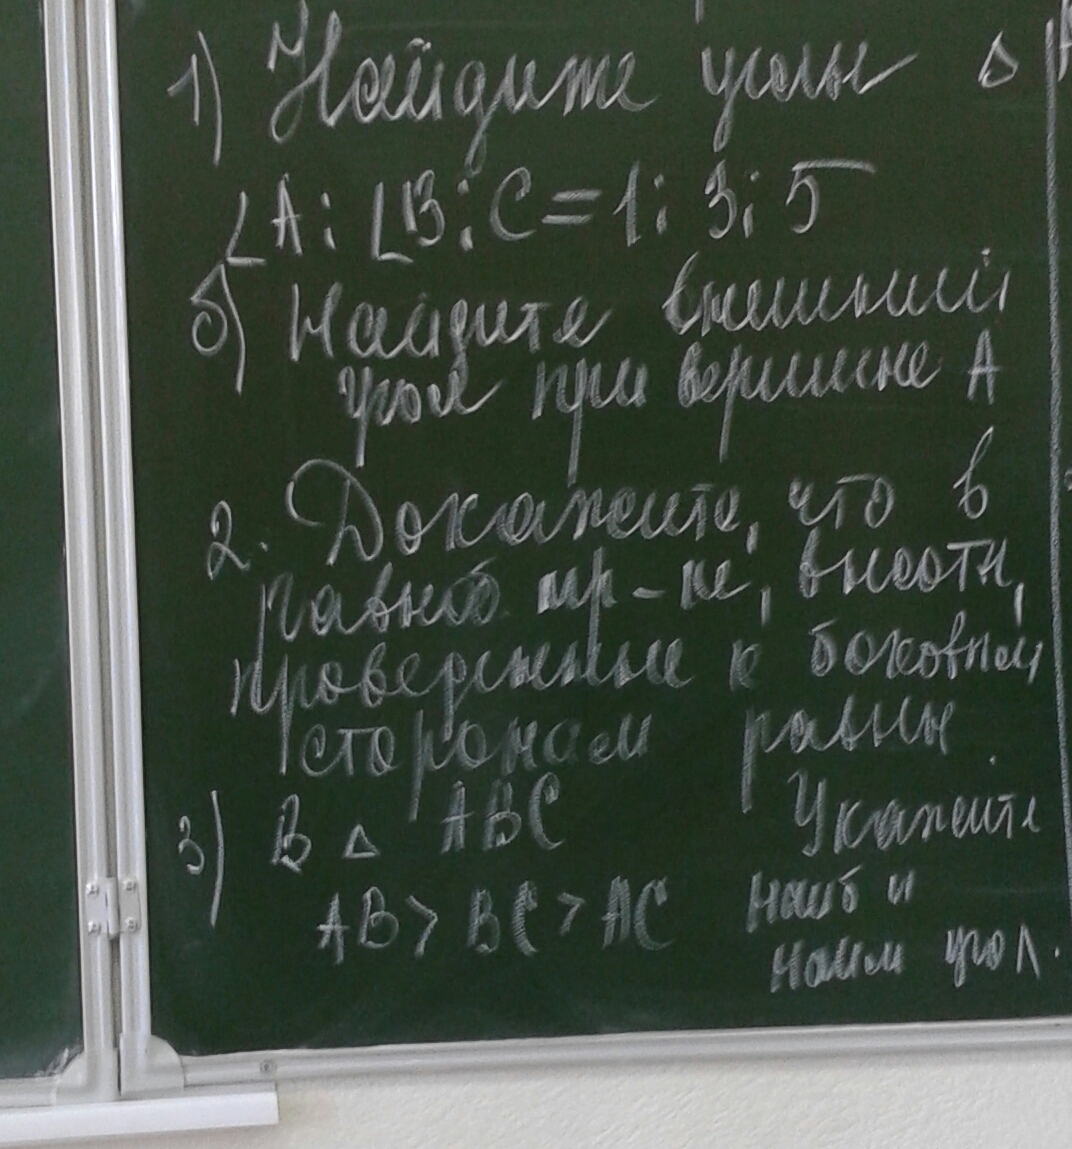 1) Найдите углы Δ
∠A : ∠B : C = 1 : 3 : 5
б) Найдите внешний
угол при вершине A
2. Докажите, что в
равноб. тр-ке, высоты,
проведенные к боковым
сторонам равны.
3) В Δ ABC Укажите
AB > BC > AC наиб и
наим угол.